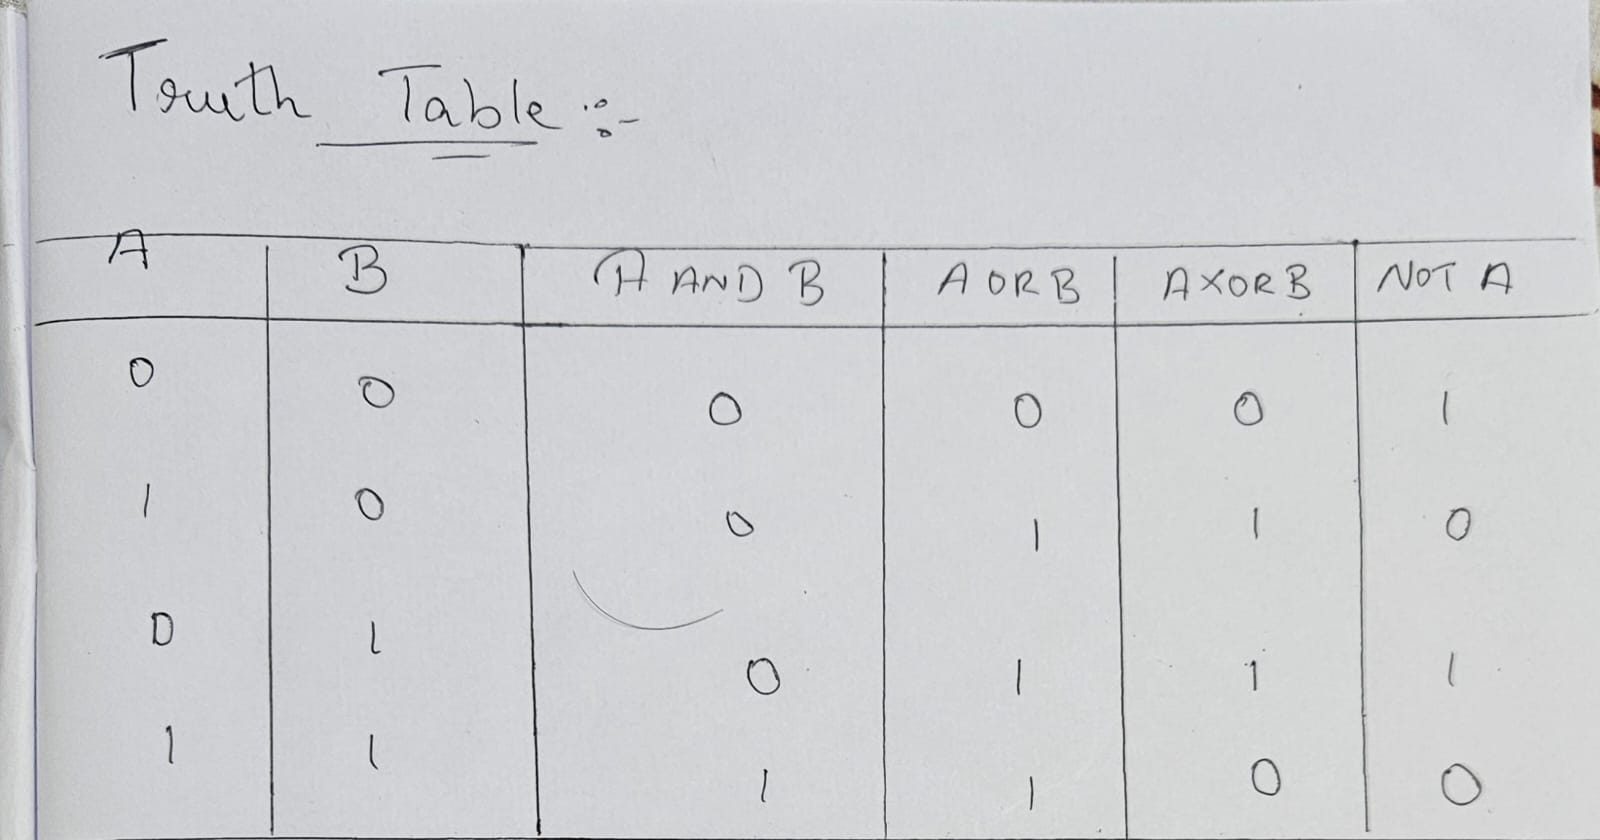 Truth Table :-
A B A AND B A OR B A XOR B NOT A
0 0 0 0 0 1
1 0 0 1 1 0
0 1 0 1 1 1
1 1 1 1 0 0